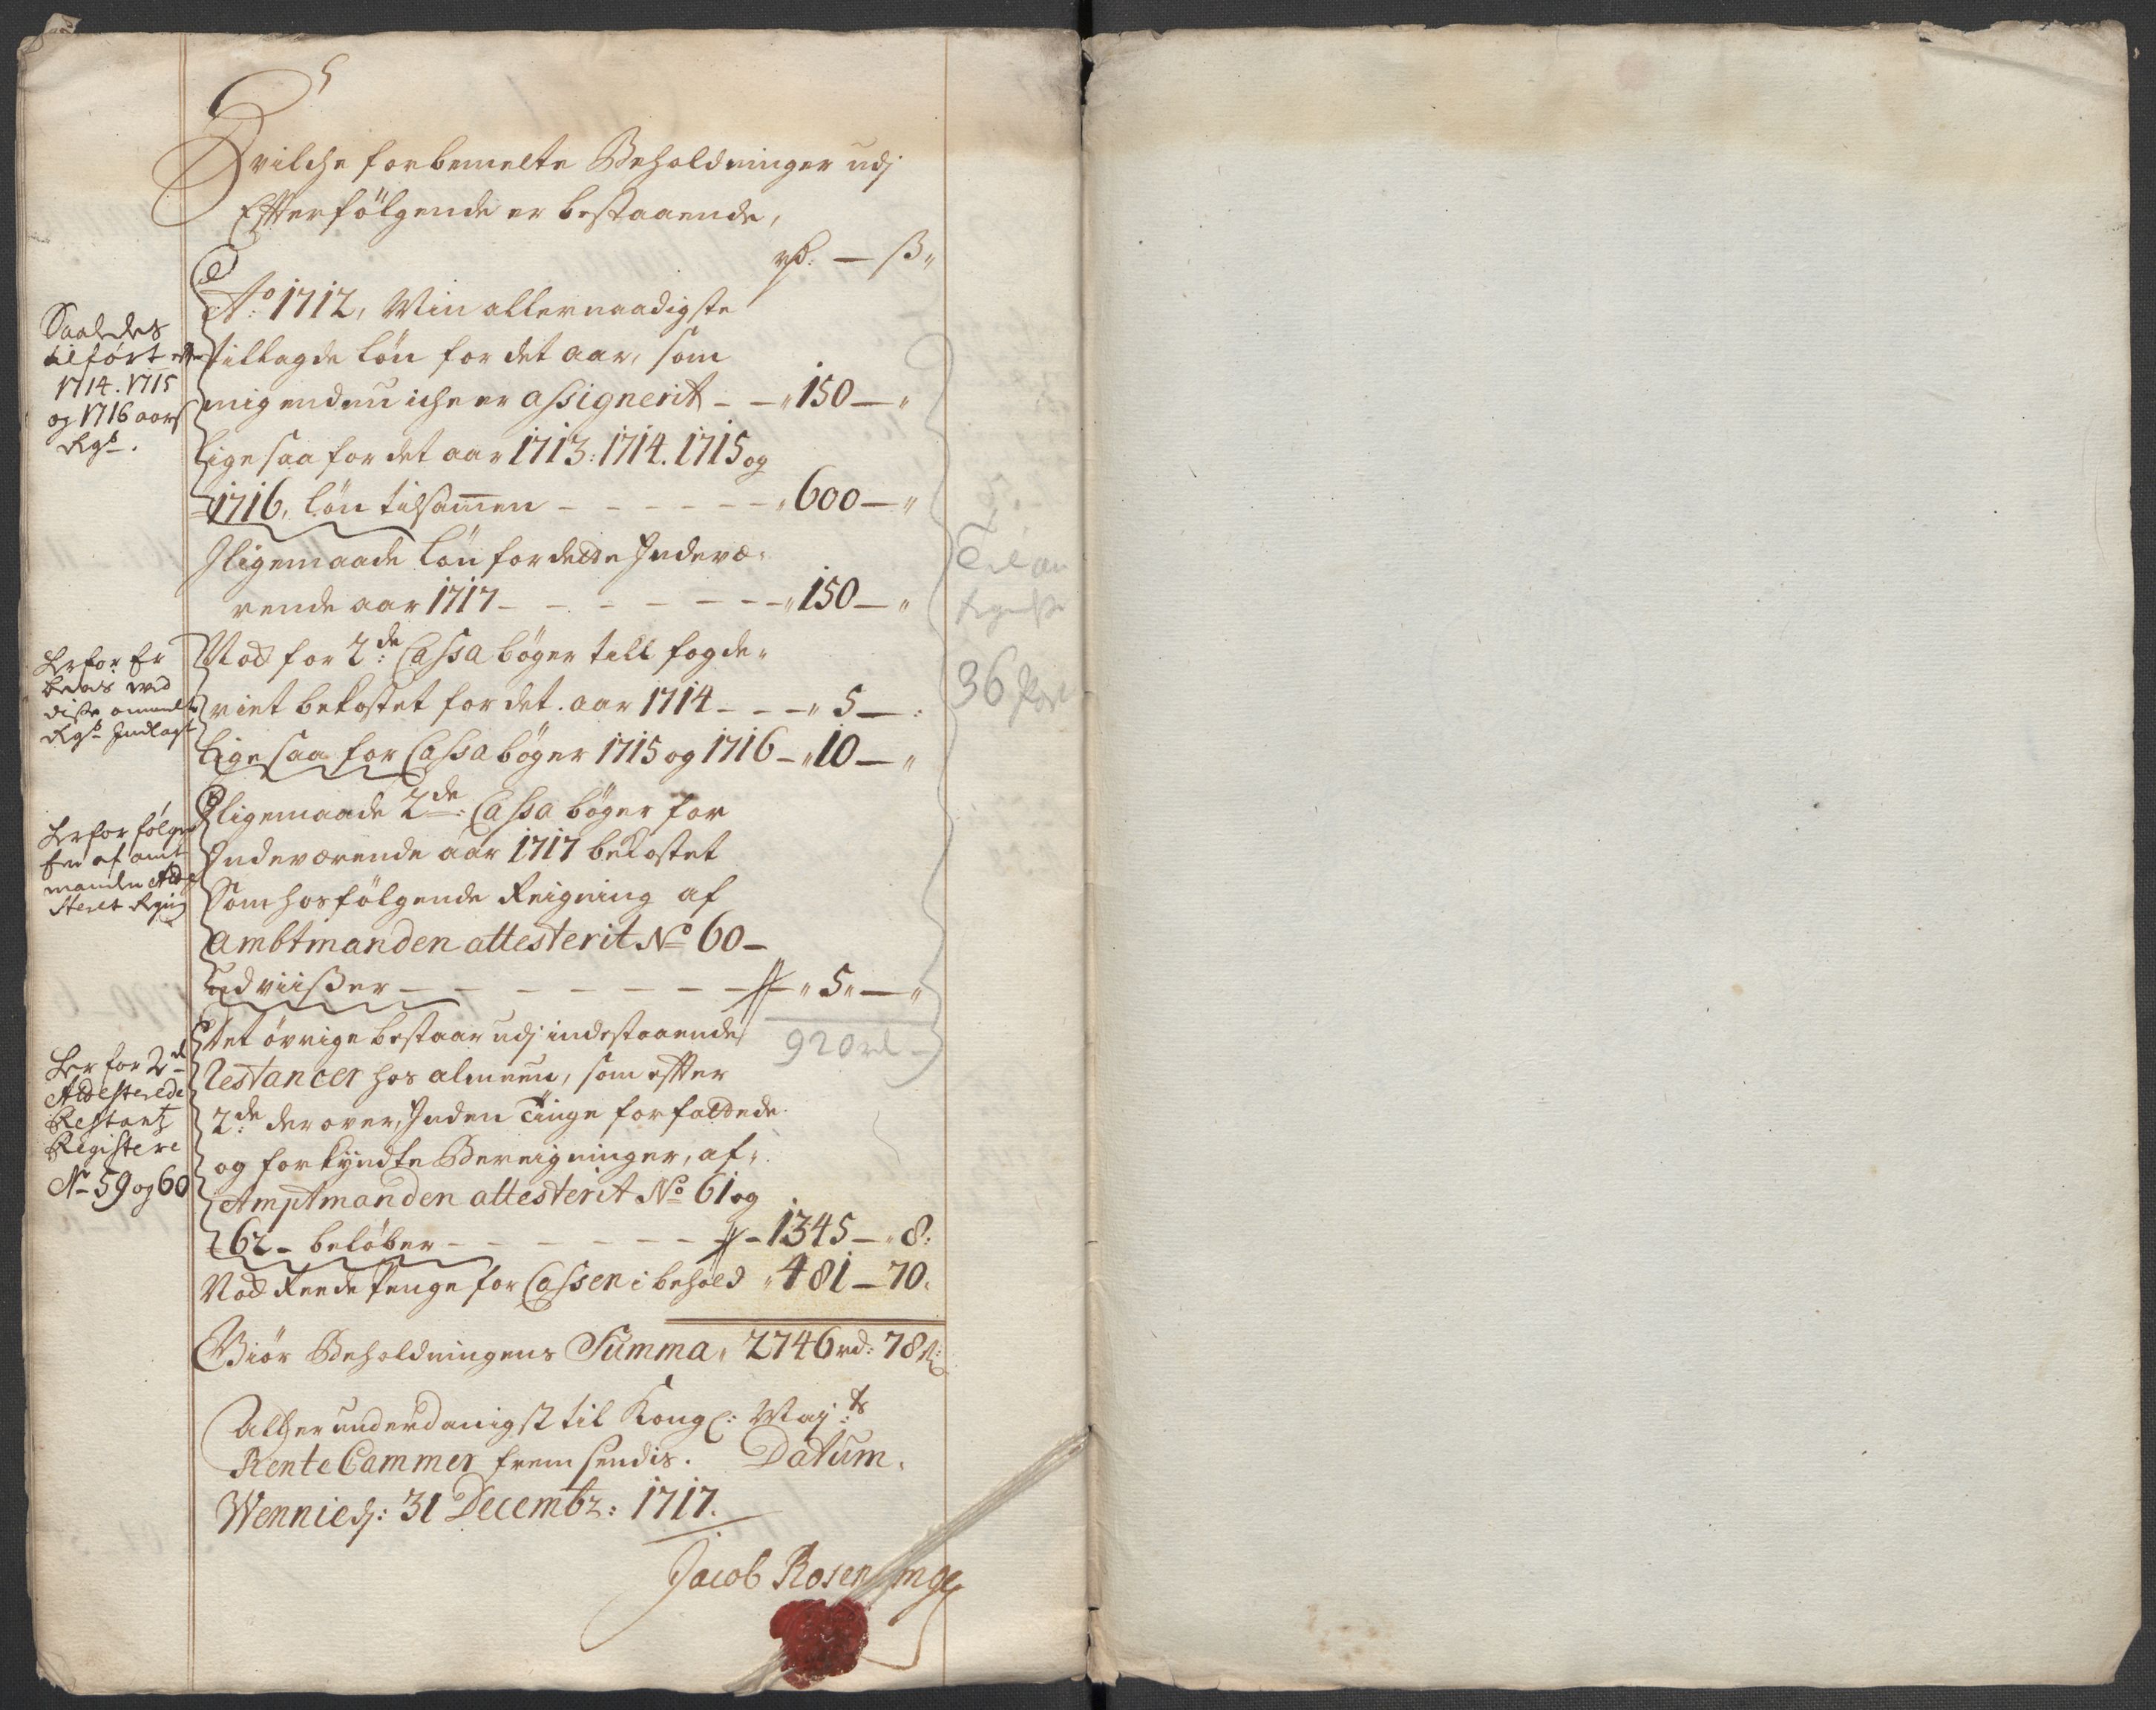 Hvilche forbemelte Beholdninger udj
Efterfölgende er bestaaende,
rd: — ß,,
Ao: 1712, Min allernaadigste
tillagde lön for det aar, som
mig endnu iche er assignerit - - „150 — „
Ligesaa for det aar 1713: 1714. 1715 og
1716, lön tilsammen - - - - - - „600 — „
Jligemaade lön for dette Indevæ-
rende aar 1717 - - - - - - - „150 — „
Nock for 2de: Cassa bøger till fogde-
riet bekostet for det aar 1714 - - - „ 5 — :
Ligesaa for Cassa bøger 1715 og 1716 - „10 — „
Jligemaade 2de: Cassa bøger for
Indeværende aar 1717 bekostet
Som hosfölgende Reigning af
Ambtmanden attesterit No 60 -
udviißer - - - - - - - - „ 5„ — „
Det övrige bestaar udj indestaaende
Restancer hos almuen, som efter
2de: derover, Inden Tinge forfattede
og forkyndte Bereigninger, af
Amptmanden attesterit No 61 og
62 - beløber - - - - - - - 1345 — „8:
Nock Reede Penge for Cassen i behold „481 — 70.
Giör Beholdningens Summa„ 2746 rd: 78 ß:
Alt her underdanigst til Kongl: Maj:ts
Rente Cammer fremsendis. Datum.
Wennie dj: 31 Decembr: 1717.
Jacob Rosen
Saaledes
tilført
1714. 1715
og 1716 aars
Rgsk.
Herfor Er
bevis ved
diße ommelte
Rgsk Indlagt
Herfor følger
En af amt
manden Atte
steret Regning
Her for 2de
Attesterede
Restantz
Registere
No 59 og 60
920 rd -
36